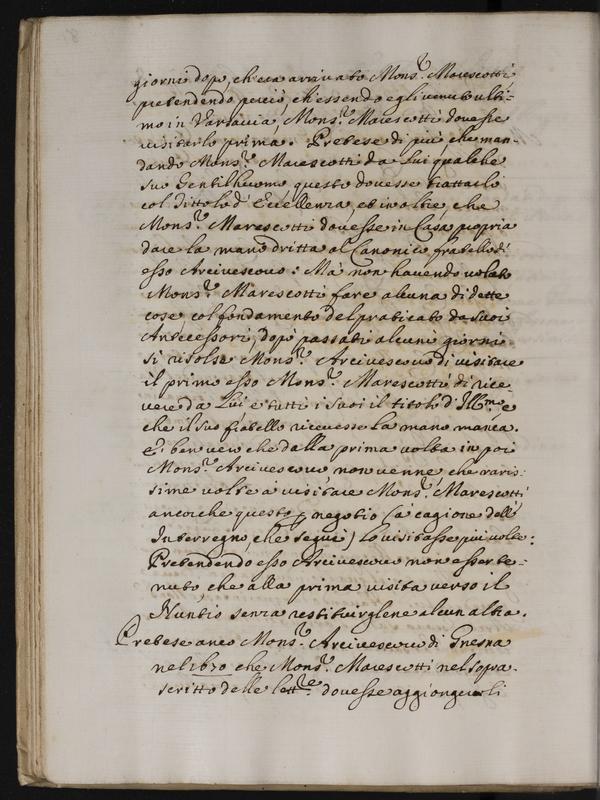 giorni dopo, ch'era arrivato Mons.r Marescotti
pretendendo perciò, ch'essendo egli venuto ulti=
mo in Varsavia, Mons.r Marescotti dovesse
visitarlo prima. Pretese di più che man-
dando Mons.r Marescotti da lui qualche
suo Gentilhuomo questo dovesse trattarlo
col Tittolo d'Eccellenza, et inoltre, che
Mons.r Marescotti dovesse in Casa propria
dare la mano dritta al Canonico fratello d'
esso Arcivescovo: Mà non havendo voluto
Mons.r Marescotti fare alcuna di dette
cose, col fondamento del praticato da suoi
Antecessori, dopò passati alcuni giorni
si risolse Mons.r Arcivescovo di visitare
il primo esso Mons.r Marescotti, di rice-
vere da Lui e tutti i suoi il titolo d'Ill.mo, e
che il suo fratello ricevesse la mano manca.
E' ben vero che dalla prima volta in poi
Mons.r Arcivescovo non venne, che raris-
sime volte à visitare Mons.r Marescotti
ancorche questo p negotio (à cagione dell'
Interregno, che seguì) lo visitasse più volte:
Pretendendo esso Arcivescovo non esser te-
nuto, che alla prima visita verso il
Nuntio senza restituirglene alcun'altra.
Pretese anco Mons.r Arcivescovo di Gnesna
nel 1670 che Mons.r Marescotti nel sopra-
scritto delle lett.re dovesse aggiongerli